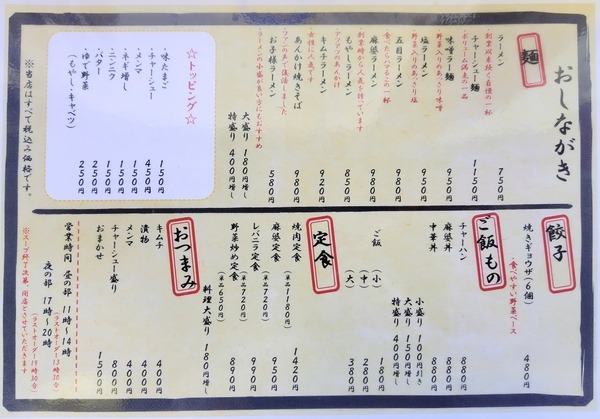 おしながき
麺
ラーメン 750円
創業以来続く自慢の一杯
チャーシュー麺 1150円
ボリューム満点の一品
味噌ラー麺 950円
野菜入りのあっさり味噌
塩ラーメン 950円
野菜入りのあっさり塩
五目ラーメン 980円
食べたらハマるこの一杯
麻婆ラーメン 980円
創業時から人気を誇っています
もやしラーメン 850円
アツアツのあんかけ
キムチラーメン 920円
女性に人気です
あんかけ焼きそば 980円
ファンの声で復活しました
お子様ラーメン 580円
ラーメンの小盛が良い方にもおすすめ
大盛り 180円増し
特盛り 400円増し
☆トッピング☆
・味たまご 150円
・チャーシュー 450円
・メンマ 150円
・ネギ増し 150円
・ニンニク 150円
・バター 250円
・ゆで野菜 250円
(もやし・キャベツ)
※当店はすべて税込み価格です。
餃子
焼きギョウザ(6個) 480円
食べやすい野菜ベース
ご飯もの
チャーハン 880円
麻婆丼 880円
中華丼 880円
小盛り 100円引き
大盛り 150円増し
特盛り 400円増し
ご飯 (小) 180円
(中) 280円
(大) 380円
定食
焼肉定食 (単品1180円) 1420円
麻婆定食 (単品720円) 950円
レバニラ定食 (単品720円) 990円
野菜炒め定食 (単品650円) 890円
料理大盛り 180円増し
おつまみ
キムチ 400円
漬物 400円
メンマ 400円
チャーシュー盛り 800円
おまかせ 1500円
営業時間 昼の部 11時~14時
(ラストオーダー13時30分)
夜の部 17時~20時
(ラストオーダー19時30分)
※スープ終了次第、閉店とさせていただきます